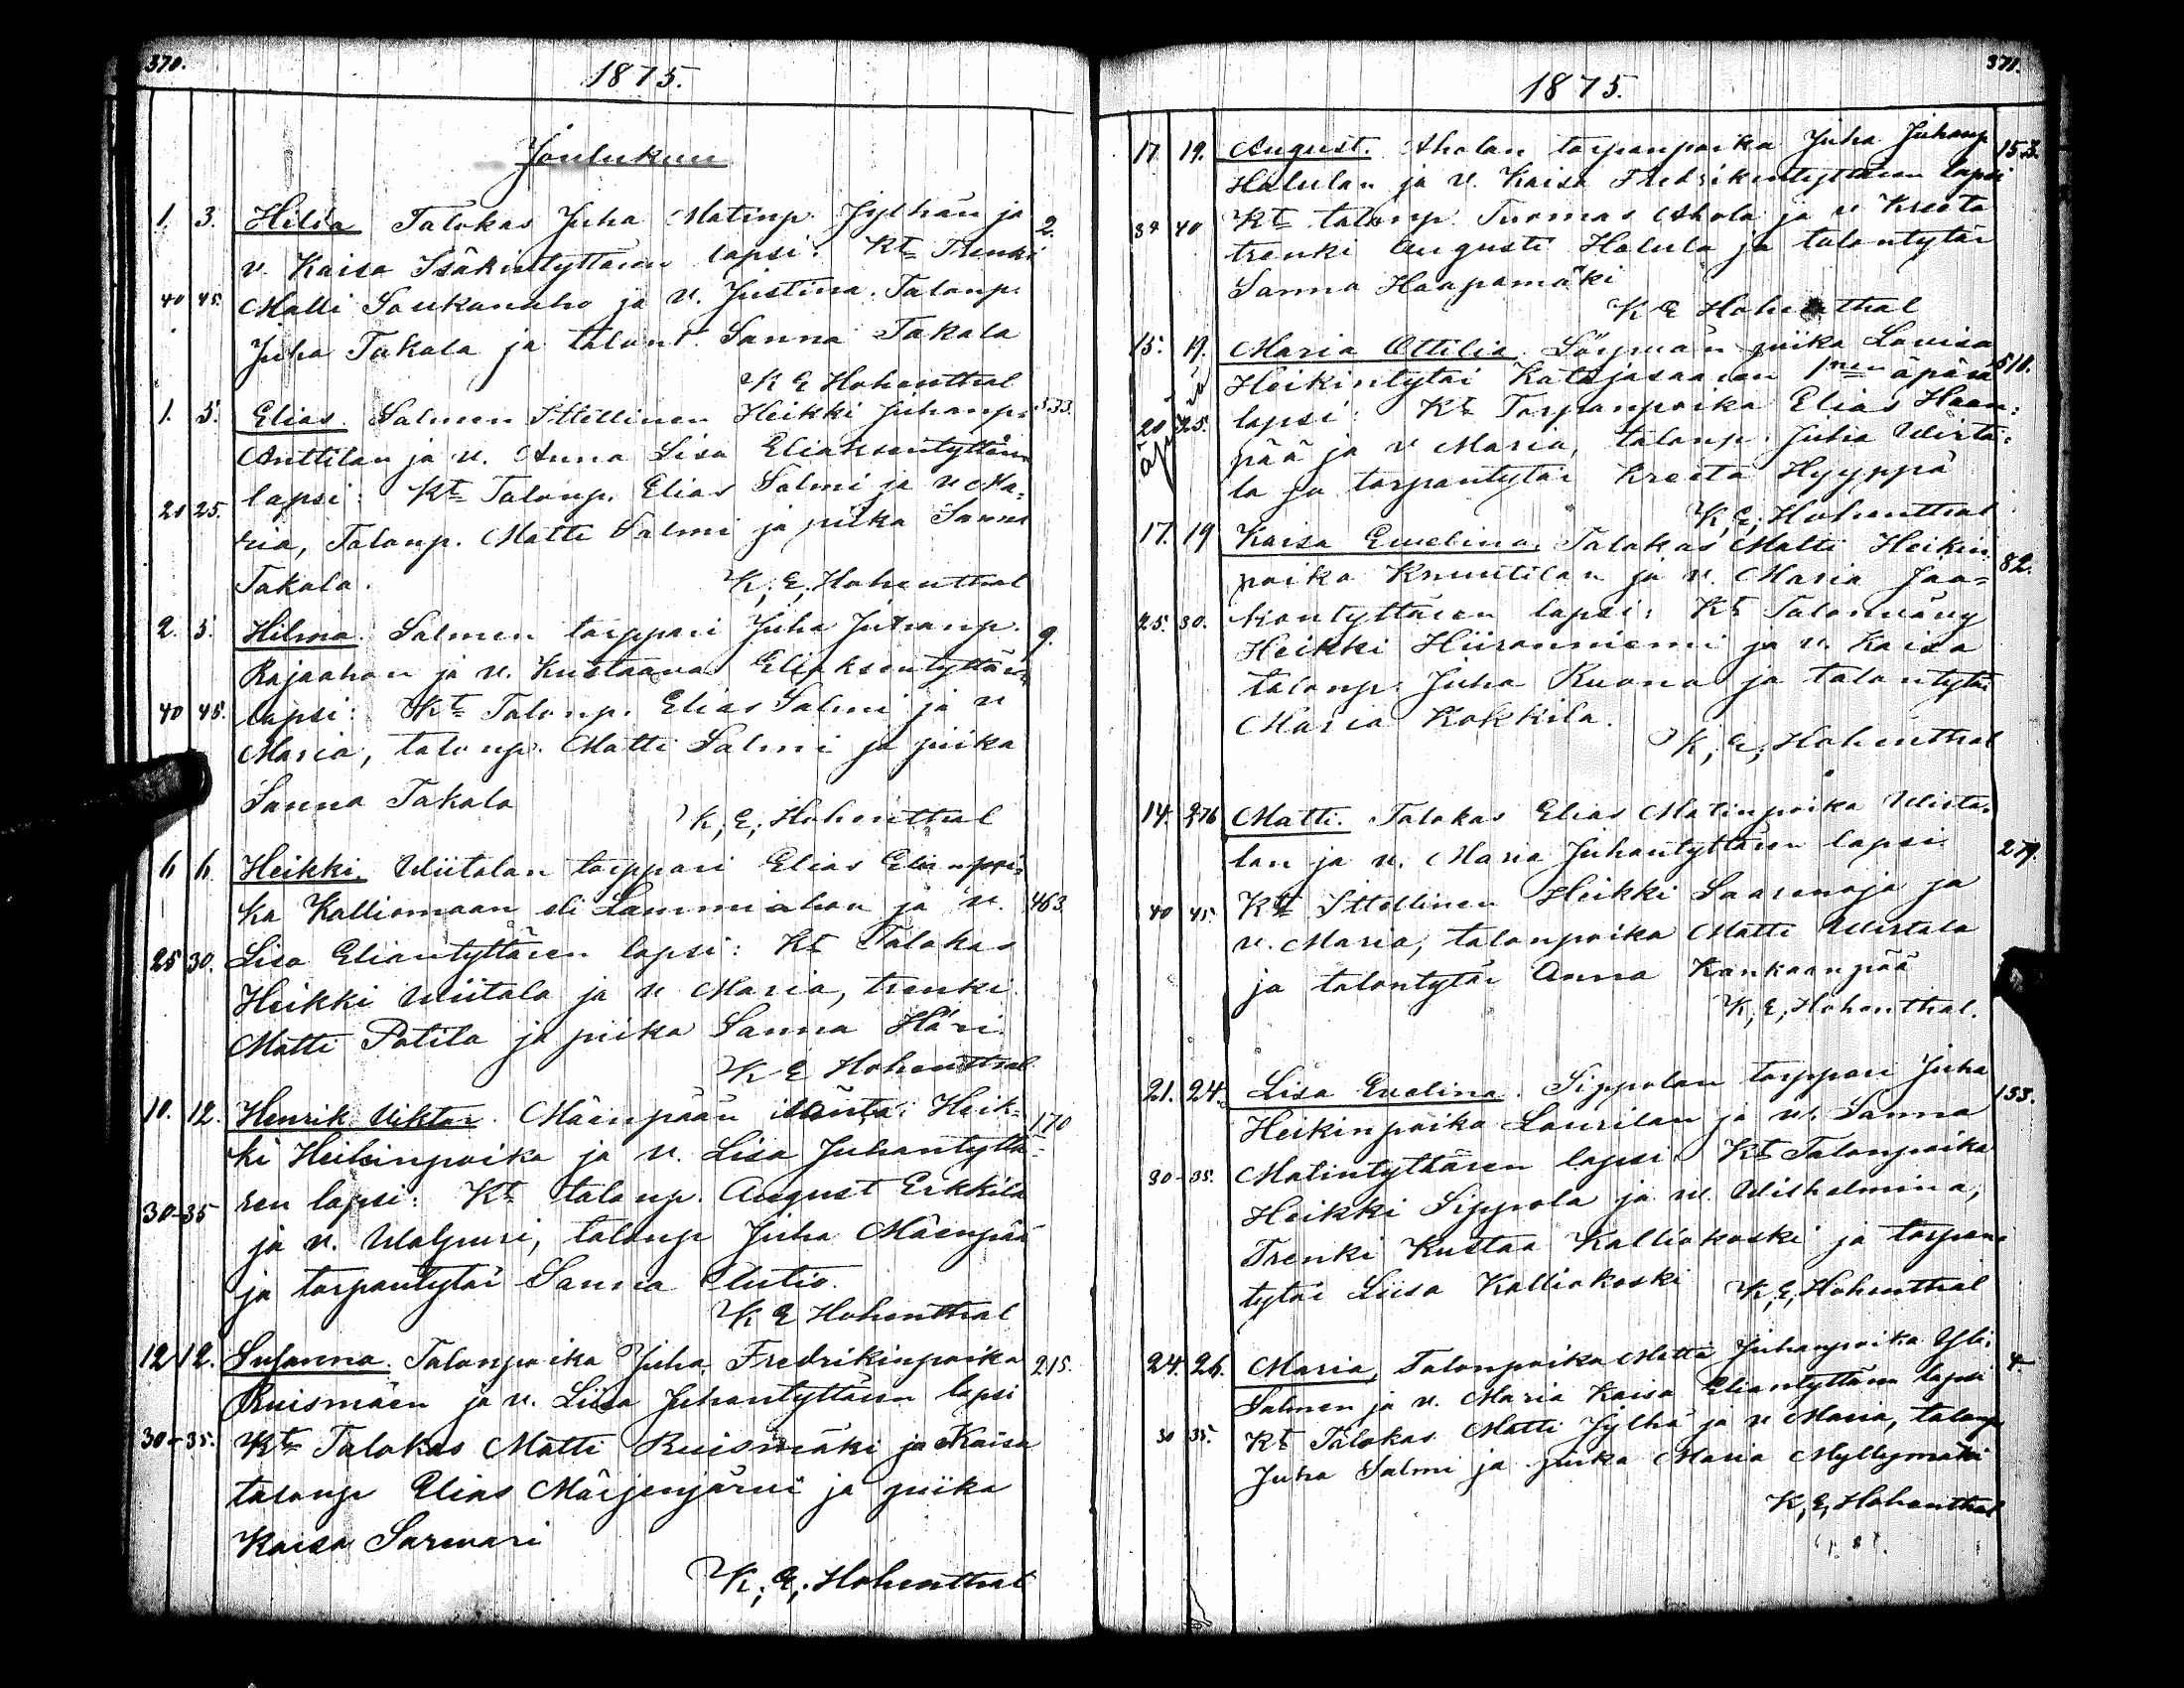 370.
1875.
Joulukuu
1. 3. Hilda Talokas Juha Matinp. Jylhän ja 2.
v. Kaisa Isäkintyttären lapsi: Kt Trenki
40 45. Matti Saukonaho ja v. Justina. Talonp.
Juha Takala ja talont. Sanna Takala
K E Hohenthal
1. 5. Elias. Salmen Ittellinen Heikki Juhanp. 533.
Anttilan ja v. Anna Lisa Eliaksentyttären
lapsi: Kt Talonp. Elias Salmi ja v Ma-
20 25. ria, Talonp. Matti Salmi ja piika Sanna
Takala. K, E, Hohenthal
2. 5. Hilma. Salmen torppari Juha Juhanp. 9.
Rajaahon ja v. Kustaava Eliaksentyttären
40 45. lapsi: Kt Talonp. Elias Salmi ja v
Maria, talonp. Matti Salmi ja piika
Sanna Takala
K, E, Hohenthal
6 6. Heikki. Wiitalan torppari Elias Elianpoi-
ka Kalliomaan eli Lammiahon ja v. 463
25 30. Lisa Eliantyttären lapsi: Kt Talokas
Heikki Wiitala ja v Maria, trenki
Matti Potila ja piika Sanna Häri
K E Hohenthal
10. 12. Henrik Viktor. Mäenpään isäntä: Heik- 170
ki Heikinpoika ja v. Lisa Juhantyttä-
30-35 ren lapsi: Kt talonp. August Erkkila
ja v. Walpuri, talonp Juha Mäenpää
ja torpantytär Sanna Autio.
K E Hohenthal
12 12. Susanna. Talonpoika Juha Fredrikinpoika 215.
Ruismäen ja v. Liisa Juhantyttären lapsi
30-35. Kt Talokas Matti Ruismäki ja Kaisa
talonp Elias Märjenjärvi ja piika
Kaisa Sarwari
K, E, Hohenthal
371.
1875.
17 19. August. Aholan torpanpoika Juha Juhanp 153.
Halulan ja v. Kaisa Fredrikintyttären lapsi
40 Kt talonp. Tuomas Ahola ja v Kreeta
trenki Augusti Halula ja talontytär
Sanna Haapamäki
K E Hohenthal
15. 19. Maria Ottilia. Sörjman piika Lovisa
Heikintytär Katajasaaren 1nen äpärä 510.
20 25. lapsi: Kt Torpanpoika Elias Haan-
pää ja v Maria, talonp. Juha Wirta-
la ja torpantytär Kreeta Hyyppä
K, E, Hohenthal
17. 19 Kaisa Ewelina. Talokas Matti Heikin
poika Knuutilan ja v. Maria Jaa- 82.
25. 30. kontyttären lapsi: Kt Talonväng
Heikki Hiironniemi ja v. Kaisa
talonp. Juha Ruona ja talontytär
Maria Kokkila.
K, E, Hohenthal
14. 26 Matti. Talokas Elias Matinpoika Wirta-
lan ja v. Maria Juhantyttären lapsi. 279.
40 45. Kt Ittellinen Heikki Saarenoja ja
v. Maria, talonpoika Matti Wirtala
ja talontytär Anna Kankaanpää
K, E, Hohenthal.
21. 24. Lisa Evelina. Sippolan torppari Juha 155.
Heikinpoika Laurilan ja v. Sanna
30-35. Matintyttären lapsi. Kt Talonpoika
Heikki Sippola ja v. Wilhelmina,
Trenki Kustaa Kalliokoski ja torpan-
tytär Liisa Kalliokoski
K, E, Hohenthal
24. 26. Maria, Talonpoika Matti Juhanpoika Yli- 4
Salmen ja v. Maria Kaisa Eliantyttären lapsi
30 35. Kt Talokas Matti Jylhä ja v Maria, talonp
Juha Salmi ja piika Maria Myllymäki
K, E, Hohenthal